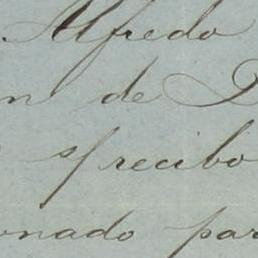 Alfredo
n de D
s/recibo
onado par